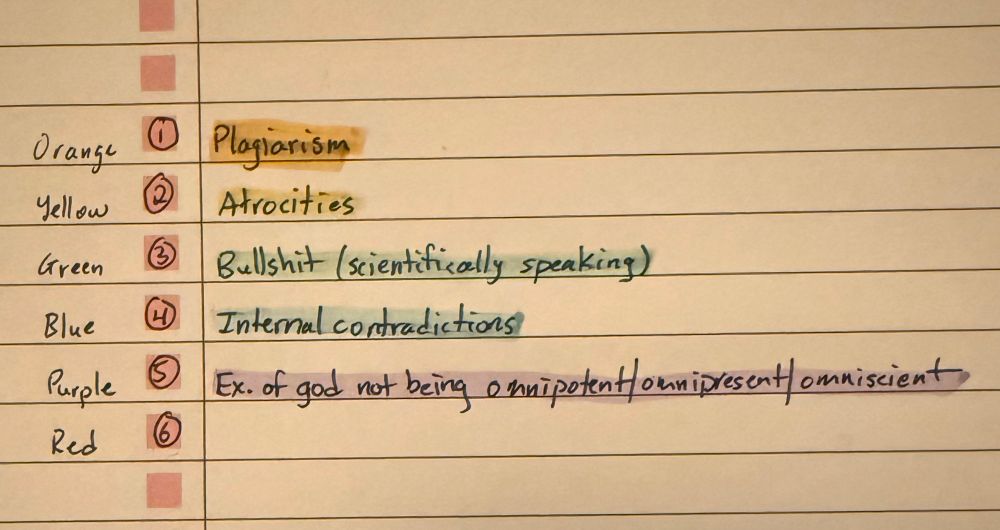 Orange ① Plagiarism
Yellow ② Atrocities
Green ③ Bullshit (scientifically speaking)
Blue ④ Internal contradictions
Purple ⑤ Ex. of god not being omnipotent/omnipresent/omniscient
Red ⑥